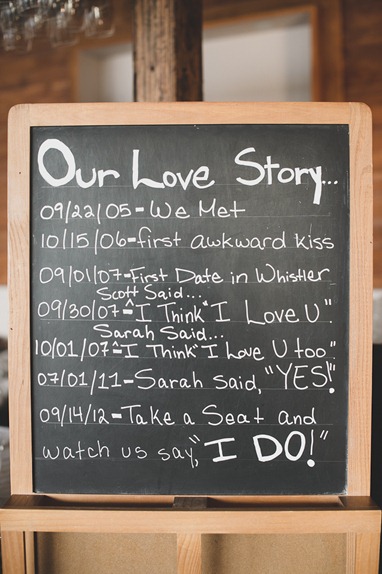 Our Love Story...
09/22/05-We Met
10/15/06-first awkward kiss
09/01/07-First Date in Whistler
Scott Said...
09/30/07-^I Think "I Love U"
Sarah Said...
10/01/07-^I Think "I Love U too."
07/01/11-Sarah Said, "YES!"
09/14/12-Take a Seat and
watch us say, "I DO!"